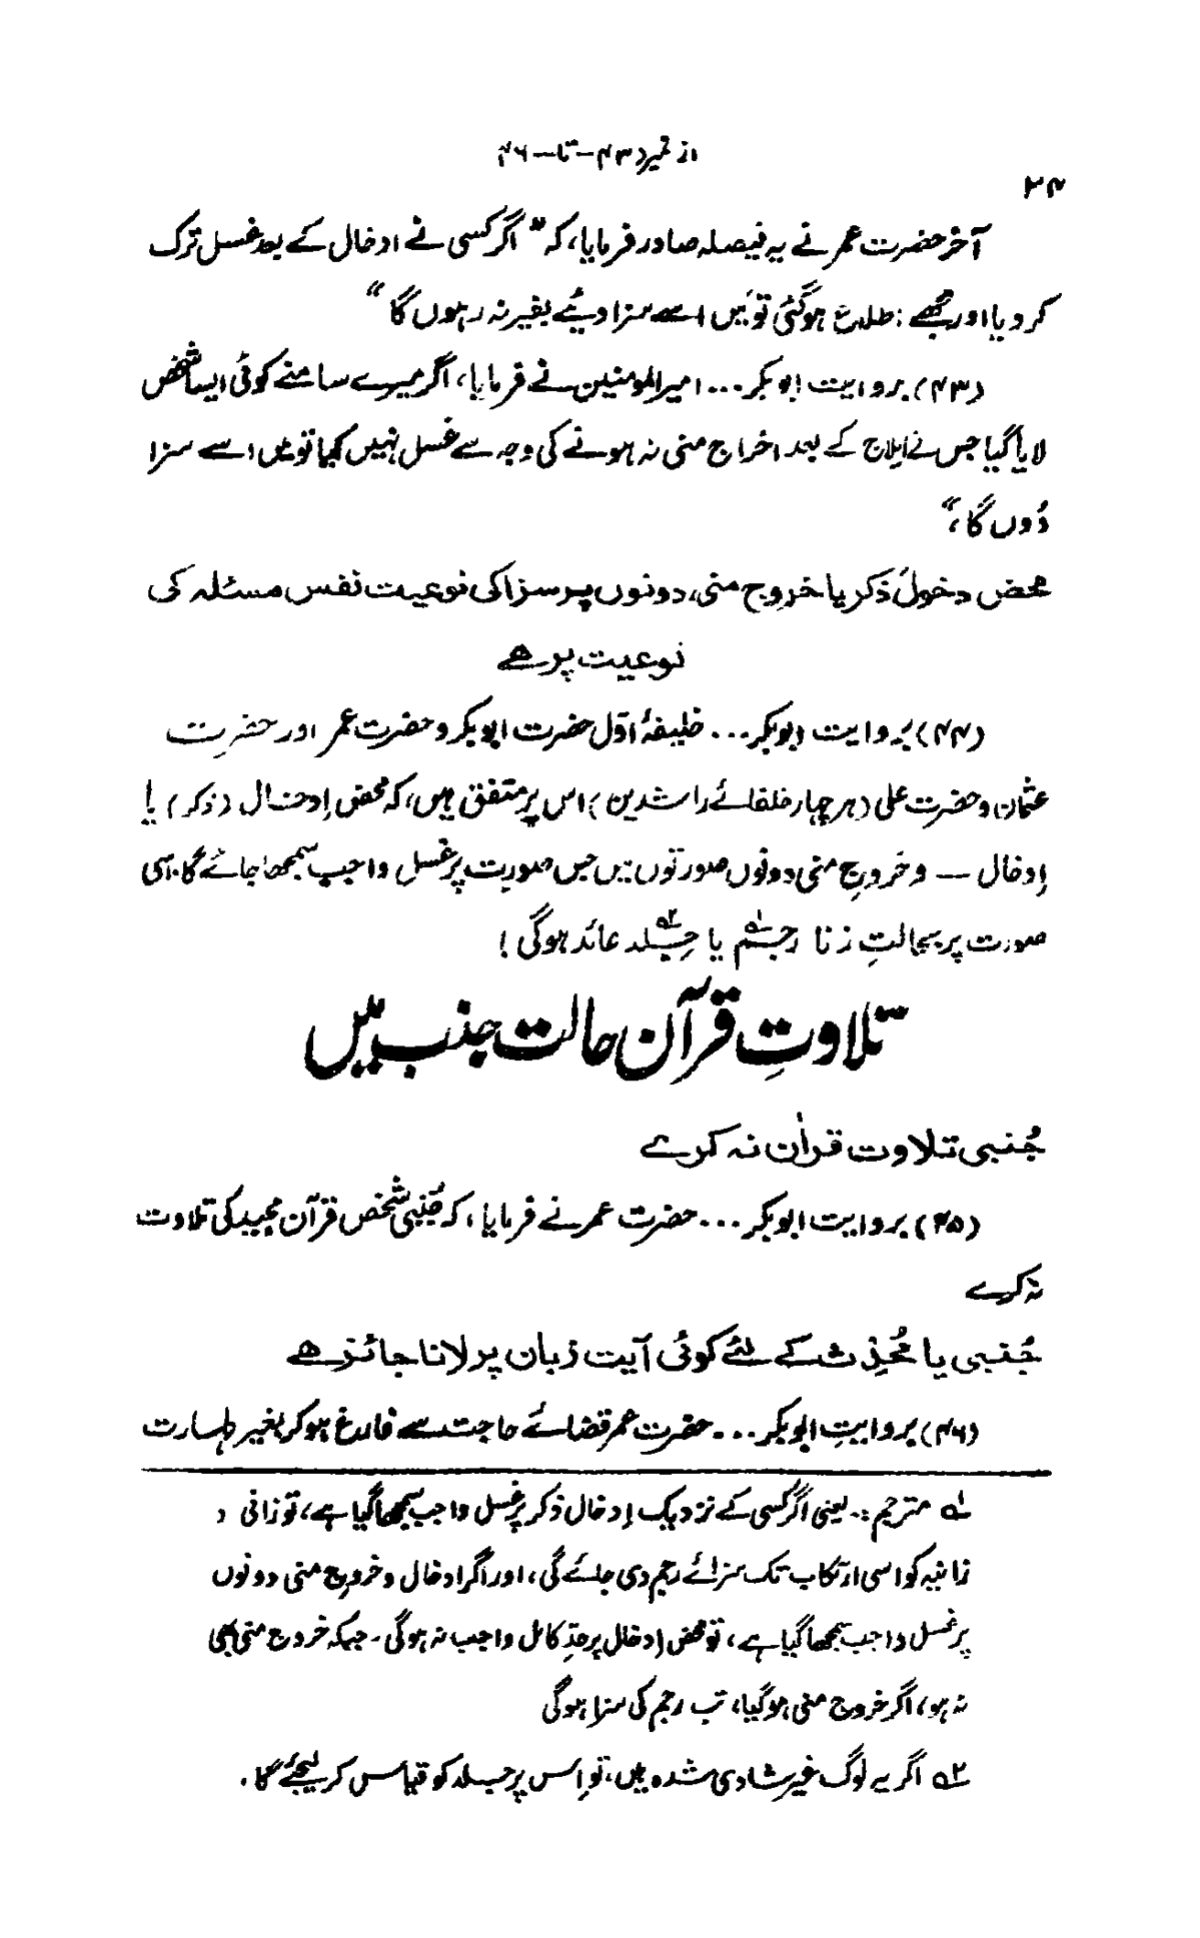 از نمبر ۴۳-تا-۴۶
۲۴
آخر حضرت عمر نے یہ فیصلہ صادر فرمایا، کہ "اگر کسی نے ادخال کے بعد غسل ترک
کر دیا اور مجھے اطلاع ہو گئی تو میں اسے سزا دیئے بغیر نہ رہوں گا"
(۴۳) بروایت ابوبکر... امیر المومنین نے فرمایا، اگر میرے سامنے کوئی ایسا شخص
لایا گیا جس نے ایلاج کے بعد اخراج منی نہ ہونے کی وجہ سے غسل نہیں کیا تو میں اسے سزا
دُوں گا،"
محض دخولِ ذکر یا خروج منی، دونوں پر سزا کی نوعیت نفس مسئلہ کی
نوعیت پر ہے
(۴۴) بروایت ابوبکر... خلیفۂ اوّل حضرت ابوبکر و حضرت عمر اور حضرت
عثمان و حضرت علی (ہر چہار خلفائے راشدین) اس پر متفق ہیں، کہ محض اِدخال (ذکر) یا
اِدخال — و خروجِ منی دونوں صورتوں میں جس صورت پر غسل واجب سمجھا جائے گا، اسی
صورت پر بحالتِ زنا رجم ۱ یا جِلد ۲ عائد ہوگی!
تلاوتِ قرآن حالت جنب میں
جُنبی تلاوت قراٰن نہ کرے
(۴۵) بروایت ابوبکر... حضرت عمر نے فرمایا، کہ جُنبی شخص قرآن مجید کی تلاوت
نہ کرے
جُنبی یا مُحْدِث کے لئے کوئی آیت زبان پر لانا جائز ہے
(۴۶) بروایتِ ابوبکر... حضرت عمر قضائے حاجت سے فارغ ہو کر بغیر طہارت
۱ مترجم :. یعنی اگر کسی کے نزدیک اِدخال ذکر پر غسل واجب سمجھا گیا ہے، تو زانی و
زانیہ کو اسی ارتکاب تک سزائے رجم دی جائے گی، اور اگر ادخال و خروجِ منی دونوں
پر غسل واجب سمجھا گیا ہے، تو محض اِدخال پر حدِ کامل واجب نہ ہوگی۔ جبکہ خروج منی بھی
نہ ہو، اگر خروج منی ہو گیا، تب رجم کی سزا ہوگی
۲ اگر یہ لوگ غیر شادی شدہ ہیں، تو اِس پر جلد کو قیاس کر لیجئے گا.